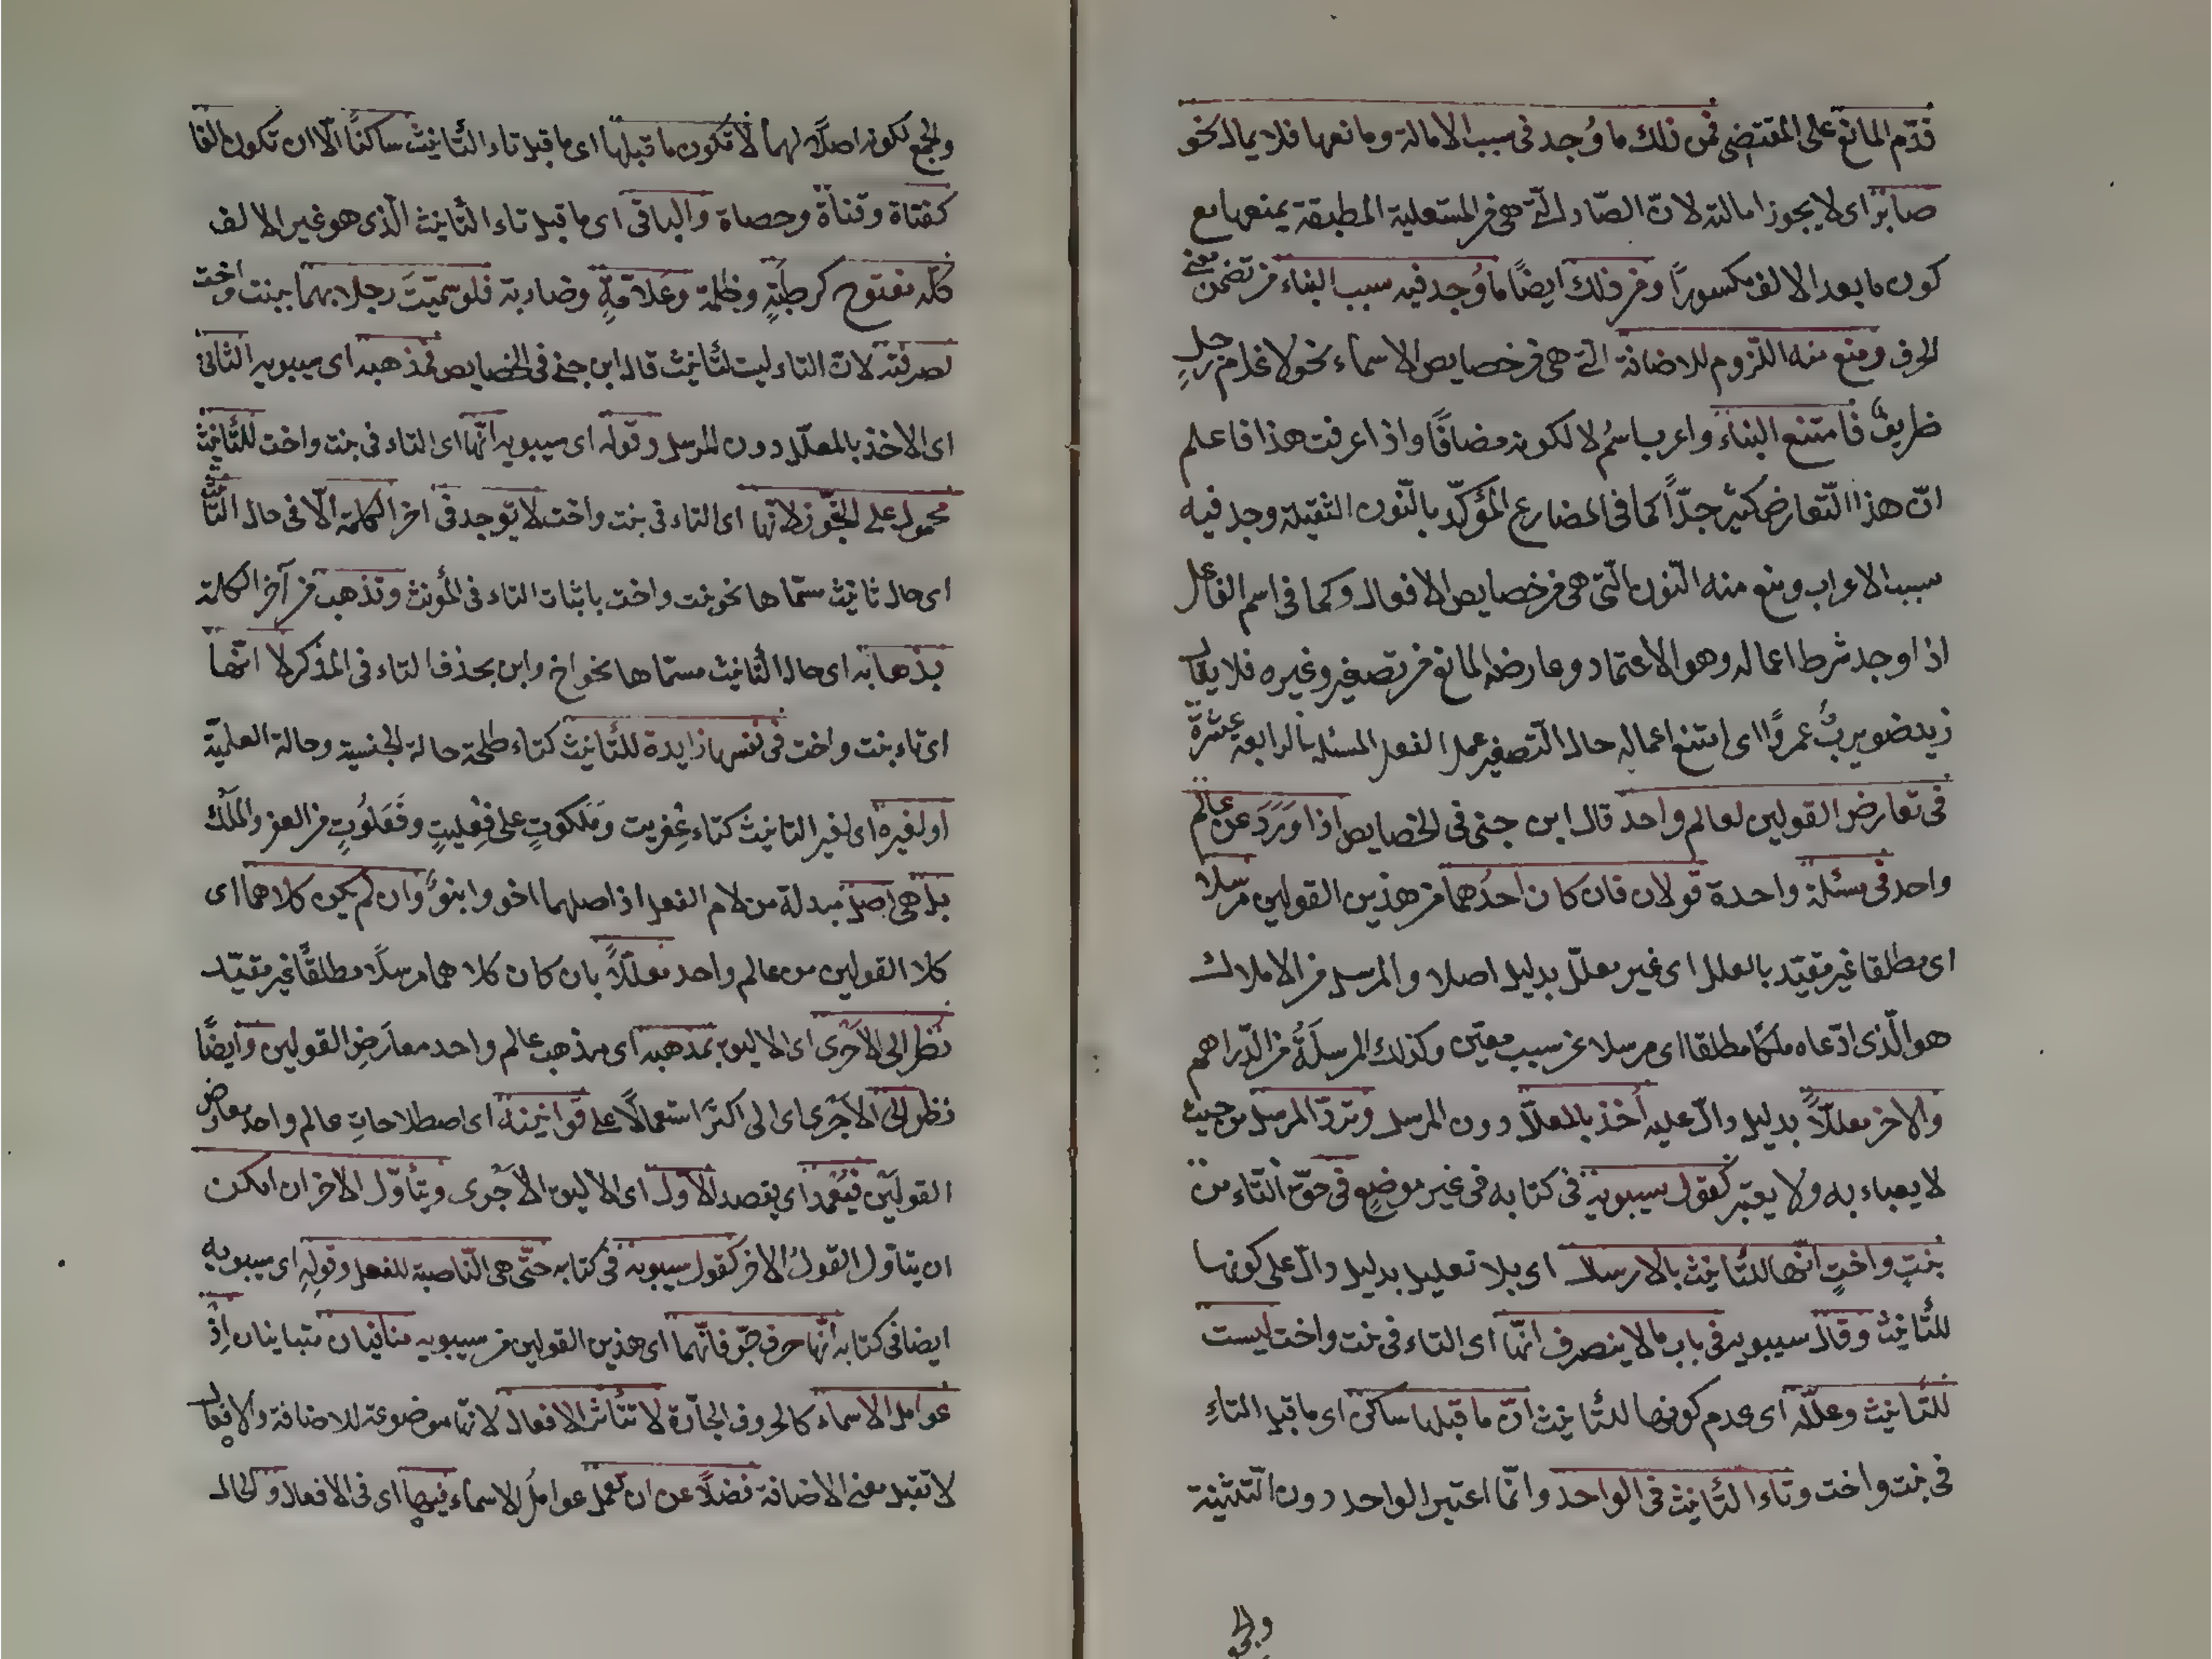 قدّم المانع على المقتضى فمن ذلك ما وُجد فى سبب الامالة ومانعها فلا يمال نحو
صابر اى لا يجوز امالته لان الصّاد الّتى هى من المستعلية المطبقة يمنعها مع
كون ما بعد الالف مكسورًا ومن ذلك ايضًا ما وُجد فيه سبب البناء من تضمن معنى
الحرف ومنع منه اللّزوم للاضافة الّتى هى من خصايص الاسماء نحو لا غلام رجلٍ
ظريفٌ فامتنع البناء واعرب اسمُ لا لكونه مضافًا واذا عرفت هذا فاعلم
انّ هذا التّعارض كثير جدًّا كما فى المضارع المؤكّد بالنّون الثقيلة وجد فيه
سبب الاعراب ومنع منه النّون الّتى هى من خصايص الافعال وكما فى اسم الفاعل
اذا وجد شرط اعماله وهو الاعتماد وعارضه المانع من تصغير وغيره فلا يقال
زيد ضويربٌ عمرًوا اى امتنع اعماله حال التّصغير عمل الفعل المسئلة الرابعة عشرة
فى تعارض القولين لعالم واحد قال ابن جنى فى الخصايص اذا وَرَدَ عن عالم
واحد فى مسئلة واحدة قولان فان كان احدُهما من هذين القولين مرسلا
اى مطلقا غير مقيّد بالعلل اى غير معلّل بدليل اصلا والمرسل من الاملاك
هو الّذى ادّعاه ملكًا مطلقا اى مرسلا عن سبب معيّن وكذلك المرسلَةُ من الدّراهم
والاخر معلّلاً بدليل دالّ عليه اُخذ بالمعلّل دون المرسل وتردّ المرسل من حيث
لا يعباء به ولا يعتبر كقول سيبويه فى كتابه فى غير موضعٍ فى حقّ التّاء من
بنتٍ واختٍ انّها للتّانيث بالارسال اى بلا تعليل بدليل دالّ على كونها
للتّأنيث وقال سيبويه فى باب ما لا ينصرف انّها اى التاء فى بنت واخت ليست
للتّانيث وعلّله اى عدم كونها للتّانيث انّ ما قبلها ساكن اى ما قبل التاءِ
فى بنت واخت وتاء التّأنيث فى الواحد وانّما اعتبر الواحد دون التّثنية
والجمع
والجمع لكونه اصلاً لهما لا تكون ما قبلها اى ما قبل تاء التّأنيث ساكنًا الّا ان تكون الفا
كفتاة وقناة وحصاة والباقى اى ما قبل تاء التّأنيث الّذى هو غير الالف
كلّه مفتوح كرطبَةٍ وظلمة وعلاّمةٍ وضاربة فلو سمّيتَ رجلا بهما ببنت واخت
لصرفته لانّ التاء ليست لتأنيث قال ابن جنى فى الخصايص فمذهبه اى سيبويه الثانى
اى الاخذ بالمعلّل دون المرسل وقوله اى سيبويه انّها اى التاء فى بنت واخت للتّأنيث
محمول على التجوّز لانّها اى التاء فى بنت واخت لا توجد فى اخر الكلمة الّا فى حال التّأنيث
اى حال تانيث مسمّاها نحو بنت واخت باثبات التاء فى المؤنث وتذهب من آخر الكلمة
بذهابه اى حال التّأنيث مسمّاها نحو اخ وابن بحذف التاء فى المذكر لا انّها
اى تاء بنت واخت فى نفسها زايدة للتّأنيث كتاء طلحة حالة الجنسية وحالة العلميّة
او لغيره اى لغير التانيث كتاء عِفريت ومَلَكوتٍ على فِعْلِيتٍ وفَعَلُوتٍ من العفر والمَلْك
بل هى اصل مبدلة من لام الفعل اذ اصلهما اخو وابنوٌ وان لم يكن كلاهما اى
كلا القولين من عالم واحد معلّلاً بان كان كلاهما مرسلًا مطلقًا غير مقيّد
نظر الى الاَحْرى اى الاليق بمذهبه اى مذهب عالم واحد معارَضِ القولين وايضًا
نظر الى الاَجْرى اى الى اكثر استعمالًا على قوانينه اى اصطلاحاتِ عالم واحد معارض
القولَيْن فيُعْمد اى يقصد الاوّل اى الاليق الاَجْرى ويتأوّل الاخر ان امكن
ان يتاوّل القولُ الاخر كقول سيبويه فى كتابه حتّى هى النّاصبة للفعل وقولِهِ اى سيبويه
ايضا فى كتابه انّها حرف جرّ فانّهما اى هذين القولين من سيبويه منافيان متباينان اِذْ
عوامل الاسماء كالحروف الجارّة لا تتأثر الافعال لانّها موضوعة للاضافة والافعال
لا تقبل معنى الاضافة فضلاً عن ان تعمل عواملُ الاسماء فيها اى فى الافعال والحال